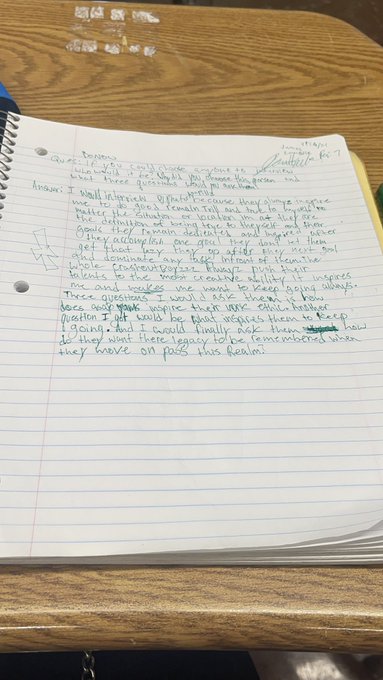 DONOW
Ques: If you could choose anyone to interview
who would it be, Why do you choose this person and
what three questions would you ask them
Per 7
Answer: I would interview because they always inspire
me to do good, remain True and true to myself no
matter the situation or location im at they are
the definition of being true to thyself and their
goals they remain dedicated and inspired after
they accomplish one goal they don't let them
get that far, they go after they next goal
and dominate any task infront of them. The
whole always push their
talents to the major creative ability it inspires
me and makes me want to keep going always.
Three questions I would ask them is how
does inspire their work ethic. Another
question I get would be what inspires them to keep
going. And I would finally ask them how
do they want there legacy to be remembered when
they move on pass this Realm?